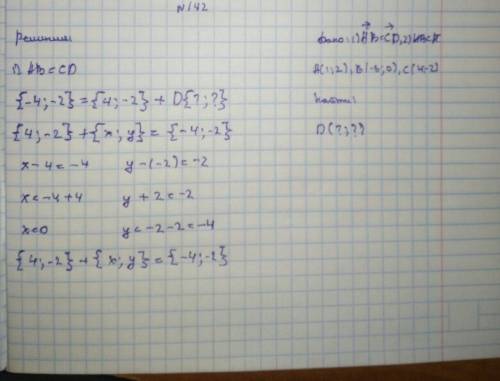 N 142
Решение
1) AB = CD
{-4;-2} = {4;-2} + D{?;?}
{4;-2} + {x;y} = {-4;-2}
x-4=-4 y-(-2)=-2
x=-4+4 y+2=-2
x=0 y=-2-2=-4
{4;-2} + {x;y} = {-4;-2}
Дано: 1) AB=CD, 2)
A(1;2), B(-3;0), C(4;-2)
Найти:
D(?;??)